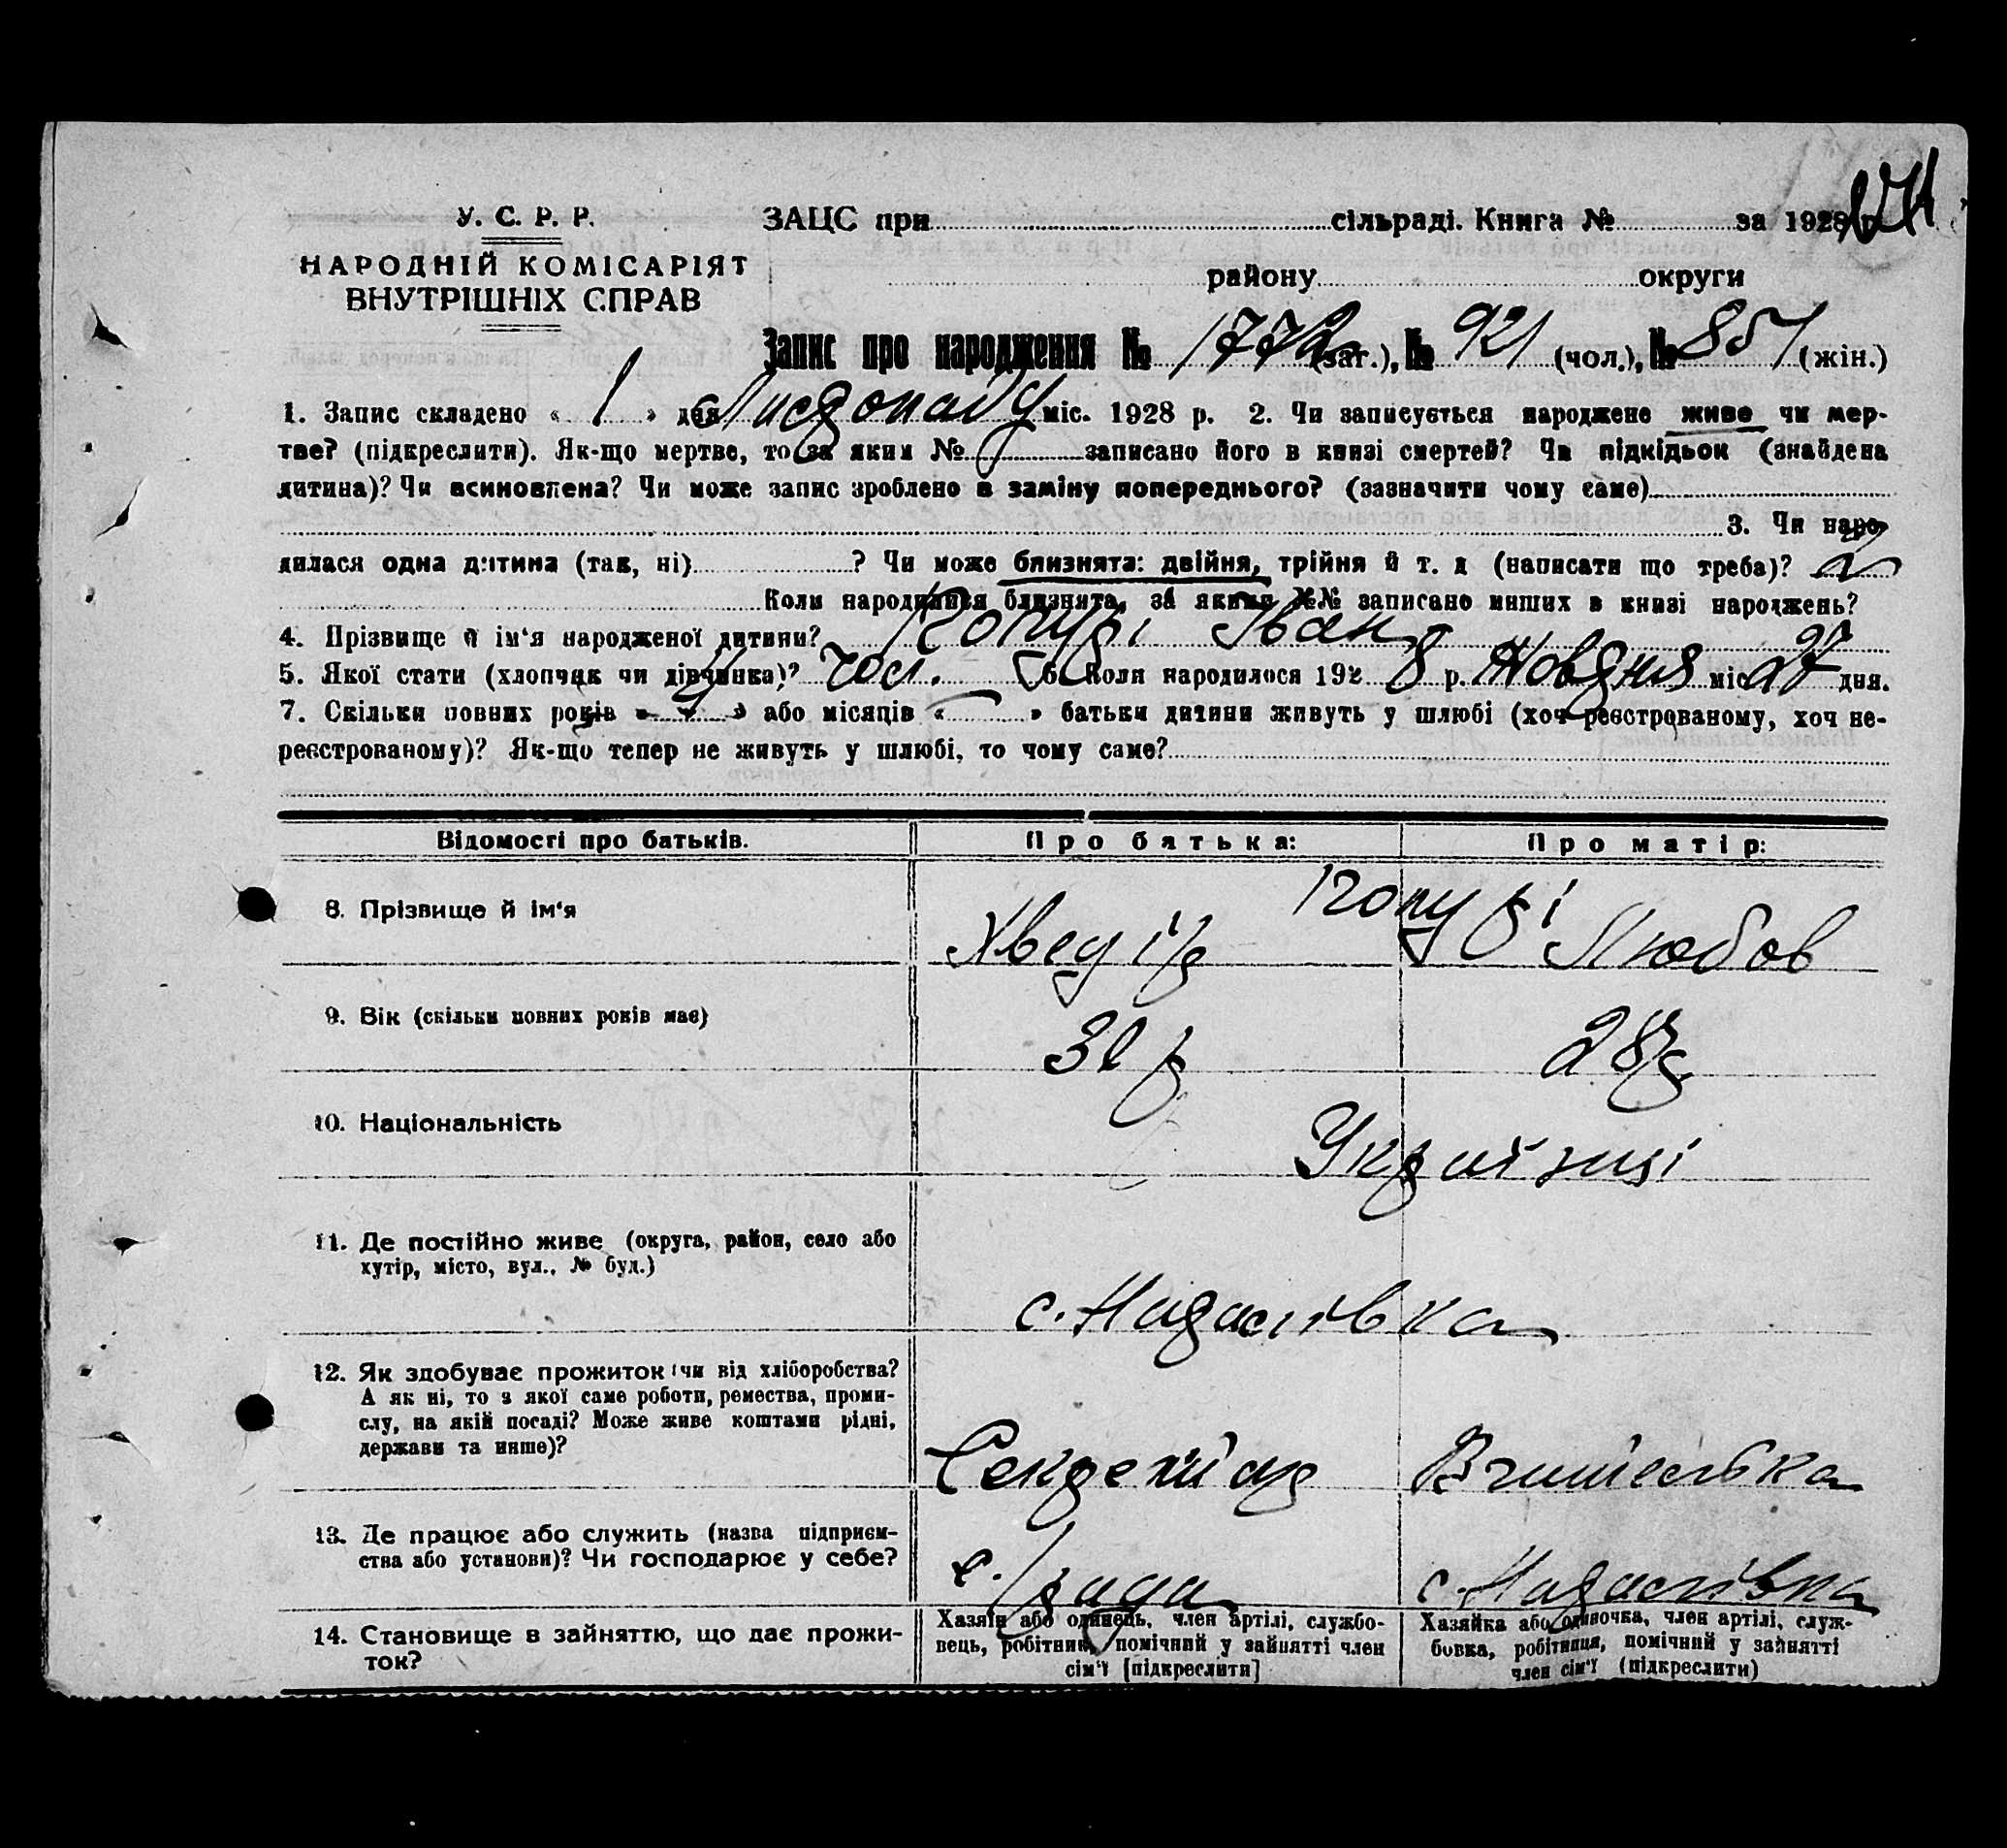 У. С. Р. Р.
НАРОДНІЙ КОМІСАРІЯТ
ВНУТРІШНІХ СПРАВ
ЗАЦС при сільраді. Книга № за 1928
району округи
Запис про народження № 1772 (заг.), № 921 (чол.), № 851 (жін.)
1. Запис складено « 1 » дня Листопаду міс. 1928 р. 2. Чи записується народжене живе чи мер-
тве? (підкреслити). Як-що мертве, то за яким № записано його в книзі смертей? Чи підкідьок (знайдена
дитина)? Чи всиновлена? Чи може запис зроблено в заміну попереднього? (зазначити чому саме)
3. Чи наро-
дилася одна дитина (так, ні) ? Чи може близнята: двійня, трійня й т. д (написати що треба)? 2
Коли народилися близнята, за якими №№ записано инших в книзі народжень?
4. Прізвище й ім'я народженої дитини? Іван
5. Якої стати (хлопчик чи дівчинка)? чол. 6. Коли народилося 192 8 р. Жовдня міс 27 дня.
7. Скільки повних років « 4 » або місяців « — » батьки дитини живуть у шлюбі (хоч реєстрованому, хоч не-
реєстрованому)? Як-що тепер не живуть у шлюбі, то чому саме?
Відомості про батьків. Про батька: Про матір:
8. Прізвище й ім'я Хведір Любов
9. Вік (скільки повних років має) 28 р
10. Національність Українці
11. Де постійно живе (округа, район, село або
хутір, місто, вул., № буд.)
с. Надаслівка
12. Як здобуває прожиток (чи від хліборобства?
А як ні, то з якої саме роботи, ремества, проми-
слу, на якій посаді? Може живе коштами рідні,
держави та инше)?
Секретар Вчителька
13. Де працює або служить (назва підприєм-
ства або установи)? Чи господарює у себе?
с. /рада с. Надаслівка
14. Становище в зайняттю, що дає прожи-
ток?
Хазяїн або одинець, член артілі, службо-
вець, робітник, помічний у зайнятті член
сім'ї [підкреслити]
Хазяйка або одиночка, член артілі, служ-
бовка, робітниця, помічний у зайнятті
член сім'ї (підкреслити)